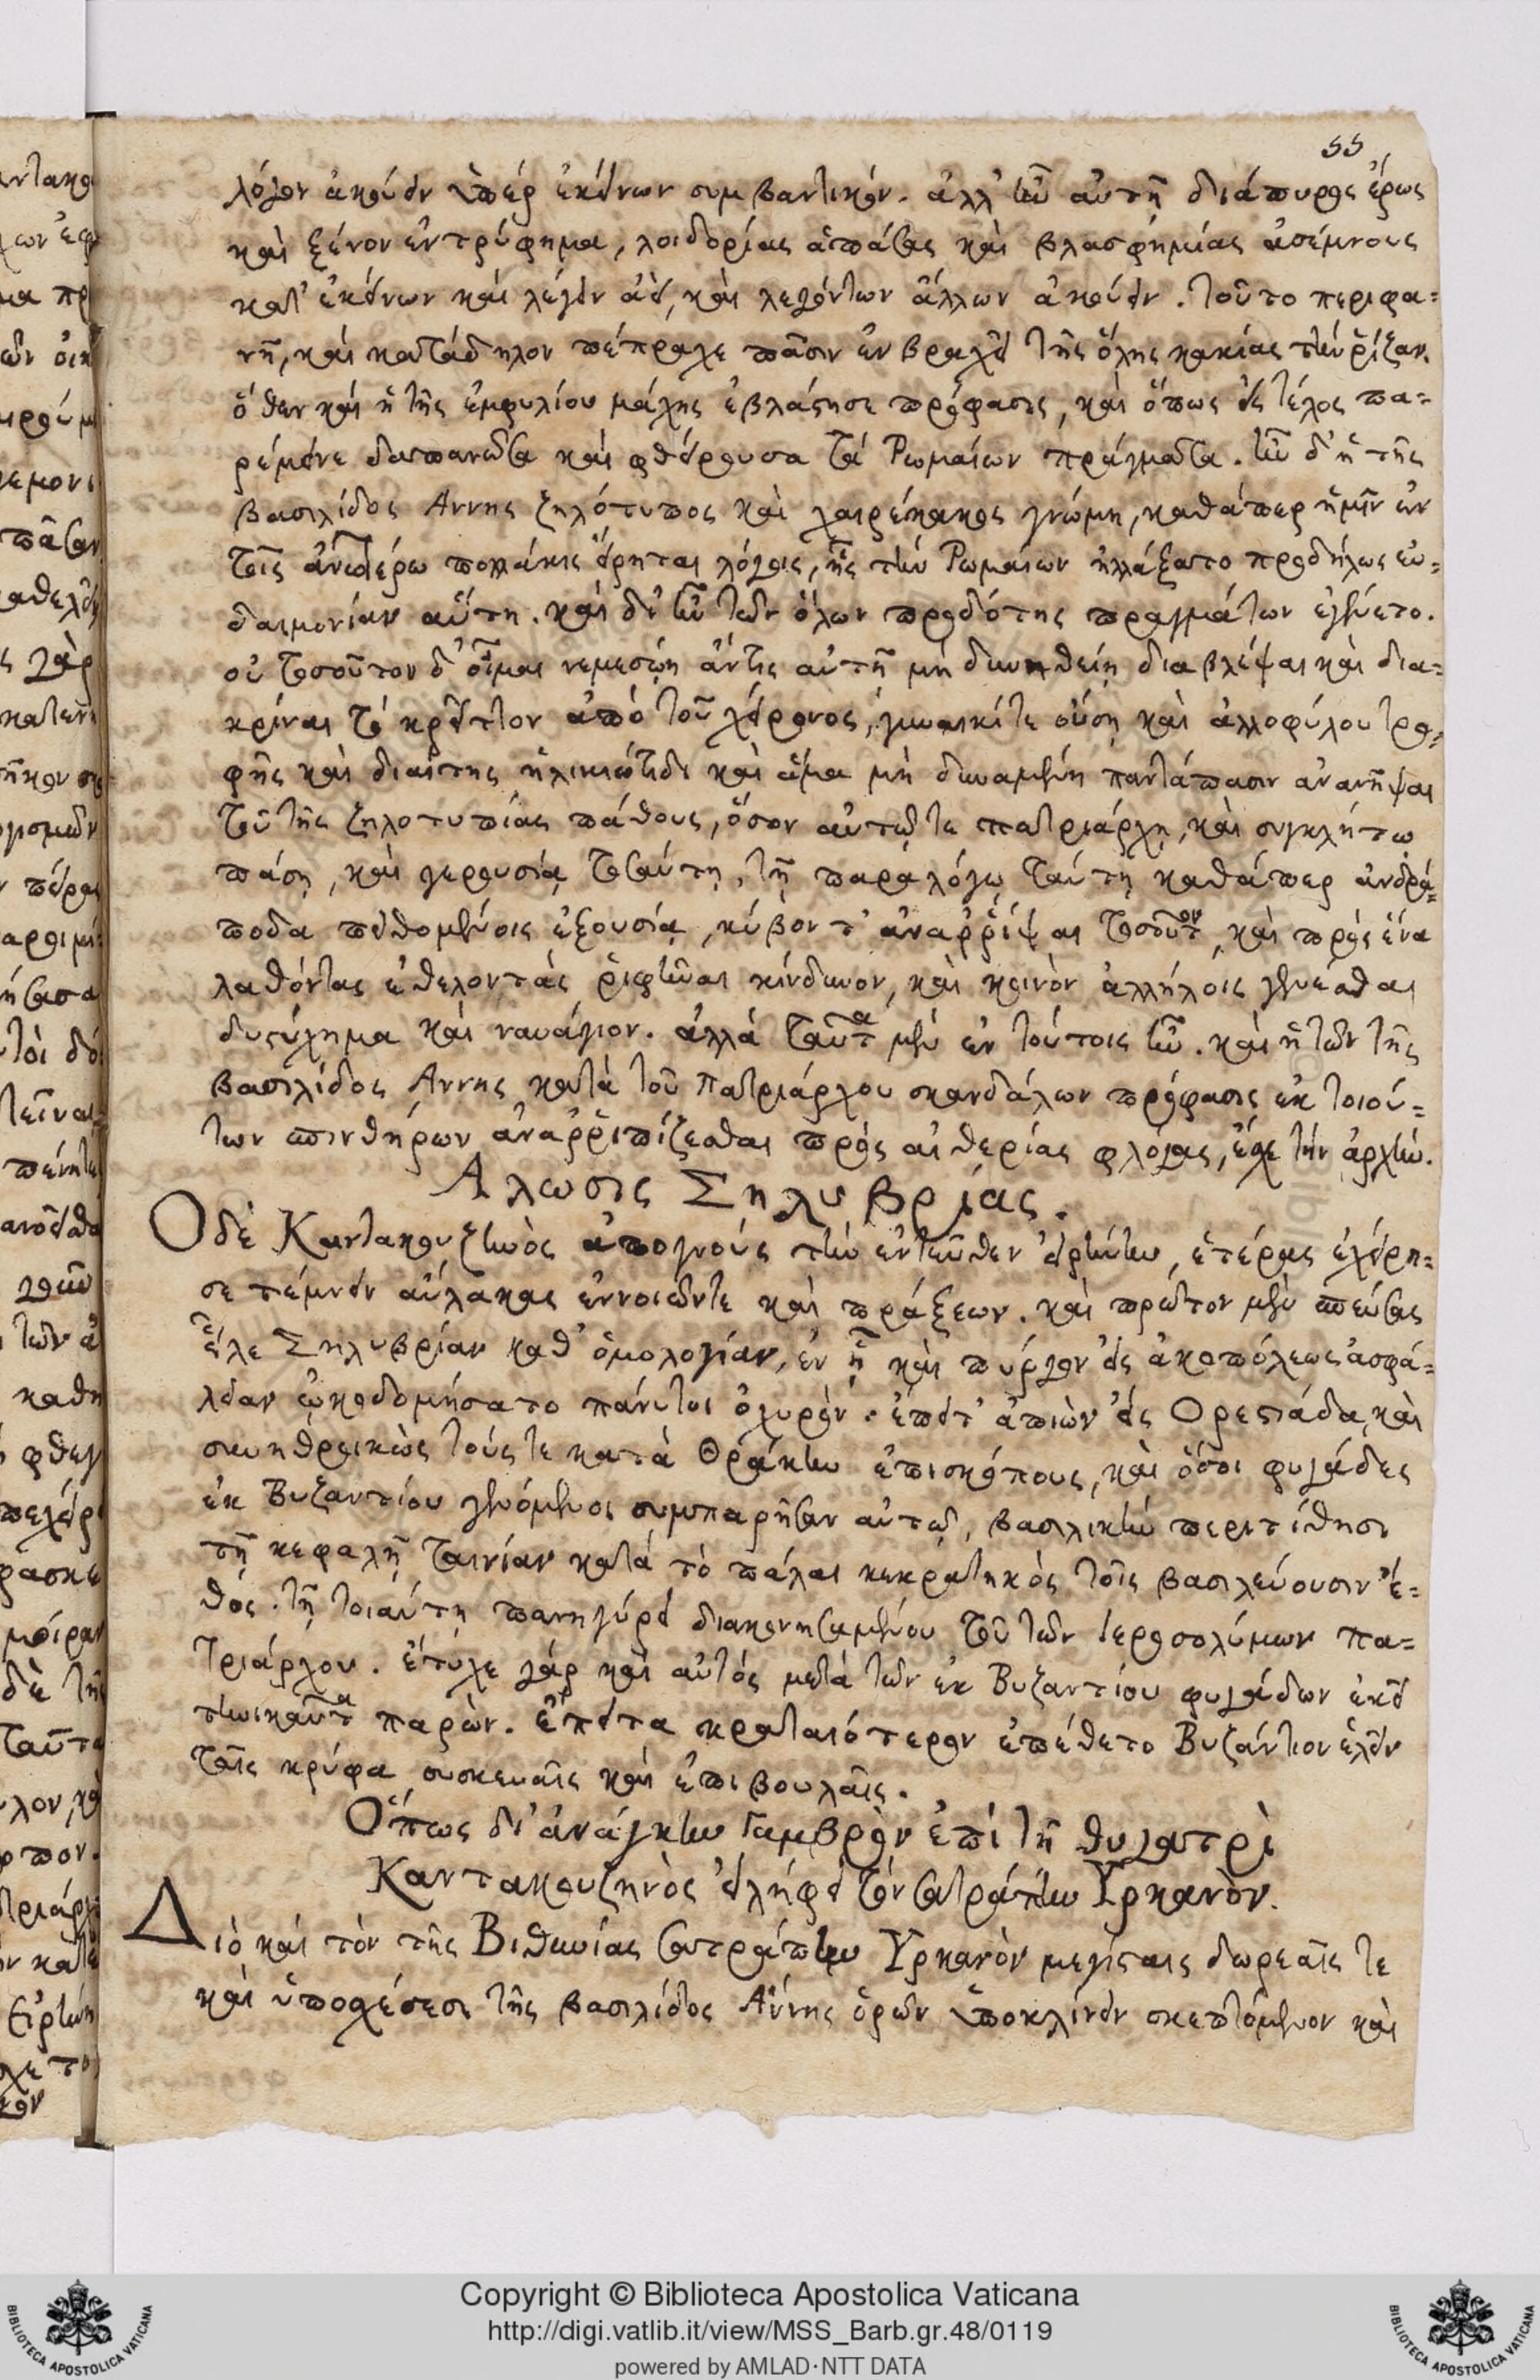 55
λόγον ἀκούειν ὑπὲρ ἐκείνων συμβαντικόν. ἀλλ' ἦν αὐτῇ διάπυρος ἔρως
καὶ ξένον ἐντρύφημα, λοιδορίας ἁπάσας καὶ βλασφημίας ἀσέμνους
κατ' ἐκείνων καὶ λέγειν ἀεὶ, καὶ λεγόντων ἄλλων ἀκούειν. τοῦτο περιφα=
νῆ, καὶ κατάδηλον πέπραχε πᾶσιν ἐν βραχεῖ τῆς ὅλης κακίας τὴν ῥίζαν.
ὅθεν καὶ ἡ τῆς ἐμφυλίου μάχης ἐβλάστησε πρόφασις, καὶ ὅπως εἰς τέλος πα=
ρέμεινε δαπανῶσα καὶ φθείρουσα τὰ Ῥωμαίων πράγματα. ἦν δ' ἡ τῆς
βασιλίδος Αννης ζηλότυπος καὶ χαιρέκακος γνώμη, καθάπερ ἡμῖν ἐν
τοῖς ἀνωτέρω πολλάκις εἴρηται λόγοις, ἧς τὴν Ῥωμαίων ἠλλάξατο προδήλως εὐ=
δαιμονίαν αὕτη. καὶ δι' ἣν τῶν ὅλων προδότης πραγμάτων ἐγένετο.
οὐ τοσοῦτον δ' οἶμαι νεμεσῴη ἄν τις αὐτῇ μὴ δυνηθείη διαβλέψαι καὶ δια=
κρῖναι τὸ κρεῖττον ἀπὸ τοῦ χείρονος, γυναικί τε οὔσῃ καὶ ἀλλοφύλου τρο=
φῆς καὶ διαίτης ἡλικιώτιδι καὶ ἅμα μὴ δυναμένῃ παντάπασιν ἀνανῆψαι
τοῦ τῆς ζηλοτυπίας πάθους, ὅσον αὐτῷ τε πατριάρχῃ, καὶ συγκλήτῳ
πάσῃ, καὶ γερουσίᾳ τοσαύτῃ, τῇ παραλόγῳ ταύτῃ καθάπερ ἀνδρά=
ποδα πειθομένοις ἐξουσίᾳ, κύβον τ' ἀναῤῥίψαι τοσοῦτον, καὶ πρὸς ἕνα
λαθόντας ἐθελοντὰς ῥιφῆναι κίνδυνον, καὶ κοινὸν ἀλλήλοις γενέσθαι
δυστύχημα καὶ ναυάγιον. ἀλλὰ ταῦτα μὲν ἐν τούτοις ἦν. καὶ ἡ τῶν τῆς
βασιλίδος Αννης κατὰ τοῦ πατριάρχου σκανδάλων πρόφασις ἐκ τοιού=
των σπινθήρων ἀναῤῥιπίζεσθαι πρὸς αἰθερίας φλόγας, ἔσχε τὴν ἀρχήν.
Αλωσις Σηλυβρίας.
Ο δὲ Καντακουζηνὸς ἀπογνοὺς τὴν ἐντεῦθεν εἰρήνην, ἑτέρας ἐχώρη=
σε τέμνειν αὔλακας ἐννοιῶν τε καὶ πράξεων. καὶ πρῶτον μὲν σπεύσας
εἷλε Σηλυβρίαν καθ' ὁμολογίαν, ἐν ᾗ καὶ πύργον εἰς ἀκροπόλεως ἀσφά=
λειαν ᾠκοδομήσατο πάνυ τοι ὀχυρόν. ἔπειτ' ἀπιὼν εἰς Ορεστιάδα, καὶ
συνηθροικὼς τούς τε κατὰ Θράκην ἐπισκόπους, καὶ ὅσοι φυγάδες
ἐκ Βυζαντίου γενόμενοι συμπαρῆσαν αὐτῷ, βασιλικὴν περιτίθησι
τῇ κεφαλῇ ταινίαν κατὰ τὸ πάλαι κεκρατηκὸς τοῖς βασιλεύουσιν ἔ=
θος. τῇ τοιαύτῃ πανηγύρει διακονησαμένου τοῦ τῶν Ιεροσολύμων πα=
τριάρχου. ἔτυχε γὰρ καὶ αὐτὸς μετὰ τῶν ἐκ Βυζαντίου φυγάδων ἐκεῖ
τηνικαῦτα παρών. ἔπειτα κραταιότερον ἐπέθετο Βυζάντιον ἑλεῖν
ταῖς κρύφα συσκευαῖς καὶ ἐπιβουλαῖς.
Οπως δι' ἀνάγκην γαμβρὸν ἐπὶ τῇ θυγατρὶ
Καντακουζηνὸς εἰλήφει τὸν σατράπην Υρκανὸν.
Διὸ καὶ τὸν τῆς Βιθυνίας σατράπην Υρκανὸν μεγίσταις δωρεαῖς τε
καὶ ὑποσχέσεσι τῆς βασιλίδος Αννης ὁρῶν ὑποκλίνειν σκεπτόμενον καὶ
Copyright © Biblioteca Apostolica Vaticana
http://digi.vatlib.it/view/MSS_Barb.gr.48/0119
powered by AMLAD·NTT DATA
BIBLIOTECA APOSTOLICA VATICANA
BIBLIOTECA APOSTOLICA VATICANA